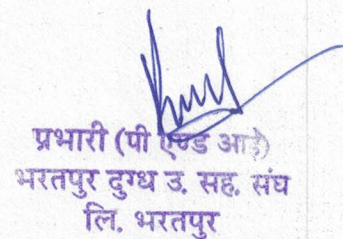 प्रभारी (पी एण्ड आई)
भरतपुर दुग्ध उ. सह. संघ
लि. भरतपुर